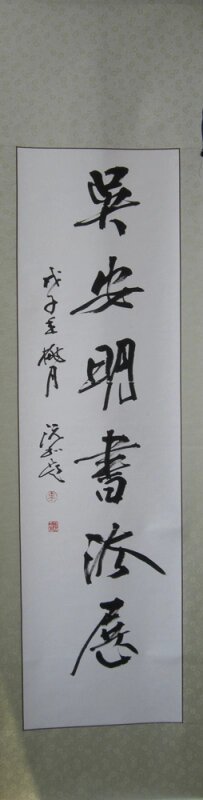 吴安明書法展
戊子年桃月